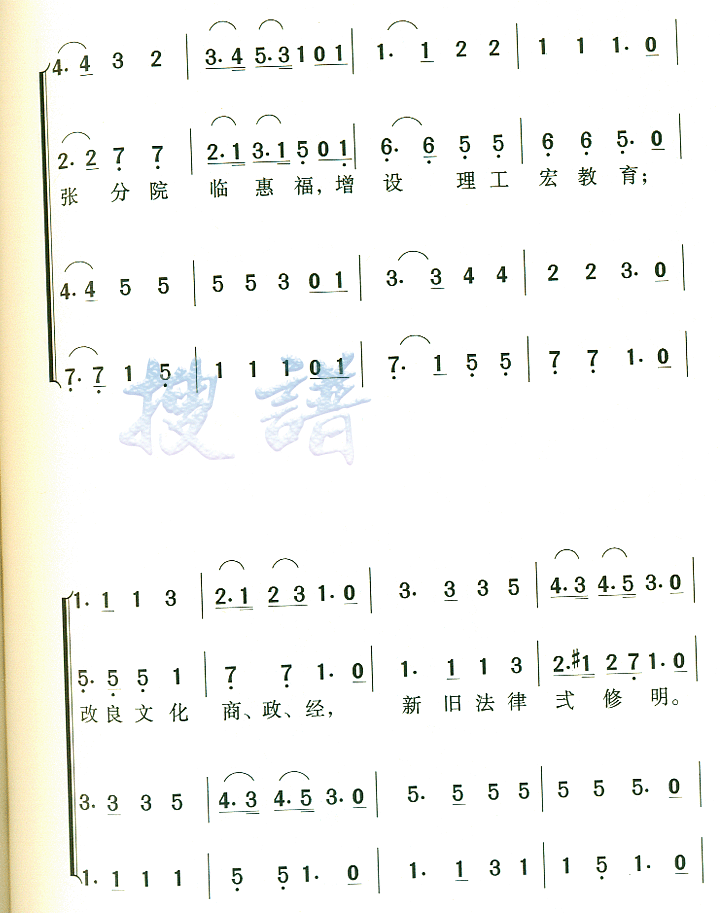 4. 4 3 2 | 3. 4 5. 3 1 0 1 | 1. 1 2 2 | 1 1 1. 0 |
2. 2 7 7 | 2. 1 3. 1 5 0 1 | 6. 6 5 5 | 6 6 5. 0 |
张 分 院 临 惠 福, 增 设 理 工 宏 教 育;
4. 4 5 5 | 5 5 3 0 1 | 3. 3 4 4 | 2 2 3. 0 |
7. 7 1 5 | 1 1 1 0 1 | 7. 1 5 5 | 7 7 1. 0 |
搜谱
1. 1 1 3 | 2. 1 2 3 1. 0 | 3. 3 3 5 | 4. 3 4. 5 3. 0 |
5. 5 5 1 | 7 7 1. 0 | 1. 1 1 3 | 2. #1 2 7 1. 0 |
改 良 文 化 商、政、经, 新 旧 法 律 式 修 明。
3. 3 3 5 | 4. 3 4. 5 3. 0 | 5. 5 5 5 | 5 5 5. 0 |
1. 1 1 1 | 5 5 1. 0 | 1. 1 3 1 | 1 5 1. 0 |